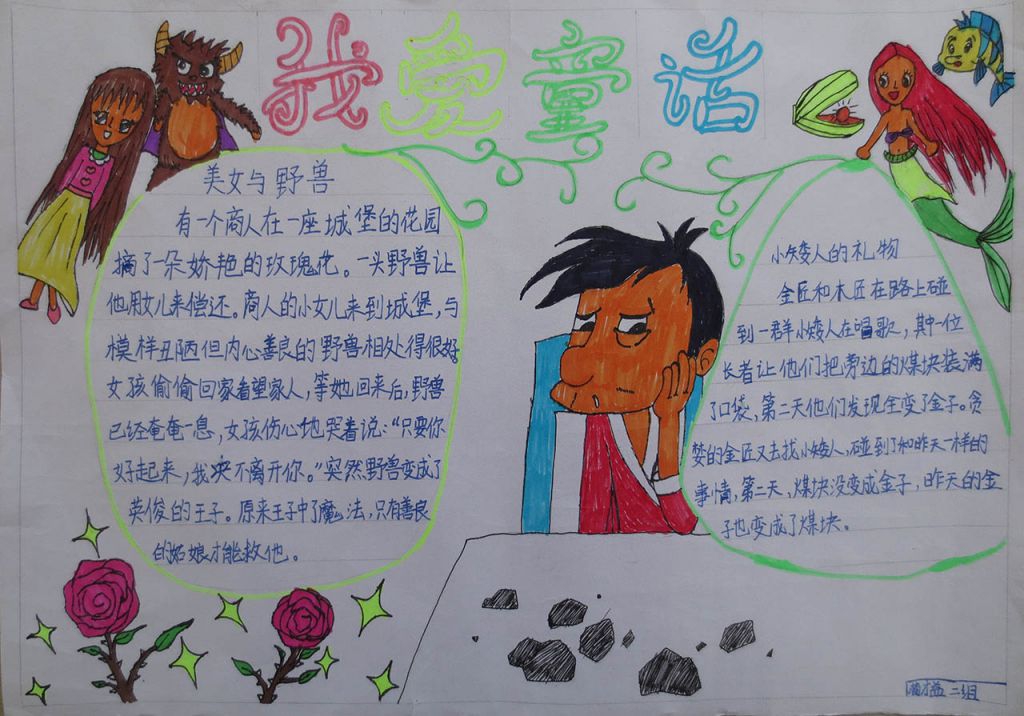 我爱童话
美女与野兽
有一个商人在一座城堡的花园
摘了一朵娇艳的玫瑰花。一头野兽让
他用女儿来偿还。商人的小女儿来到城堡,与
模样丑陋但内心善良的野兽相处得很好
女孩偷偷回家看望家人,等她回来后,野兽
已经奄奄一息,女孩伤心地哭着说:“只要你
好起来,我决不离开你。”突然野兽变成了
英俊的王子。原来王子中了魔法,只有善良
的姑娘才能救他。
小矮人的礼物
金匠和木匠在路上碰
到一群小矮人在唱歌,其中一位
长者让他们把旁边的煤块装满
了口袋,第二天他们发现全变了金子。贪
婪的金匠又去找小矮人,碰到了和昨天一样的
事情,第二天,煤块没变成金子,昨天的金
子也变成了煤块。
二组